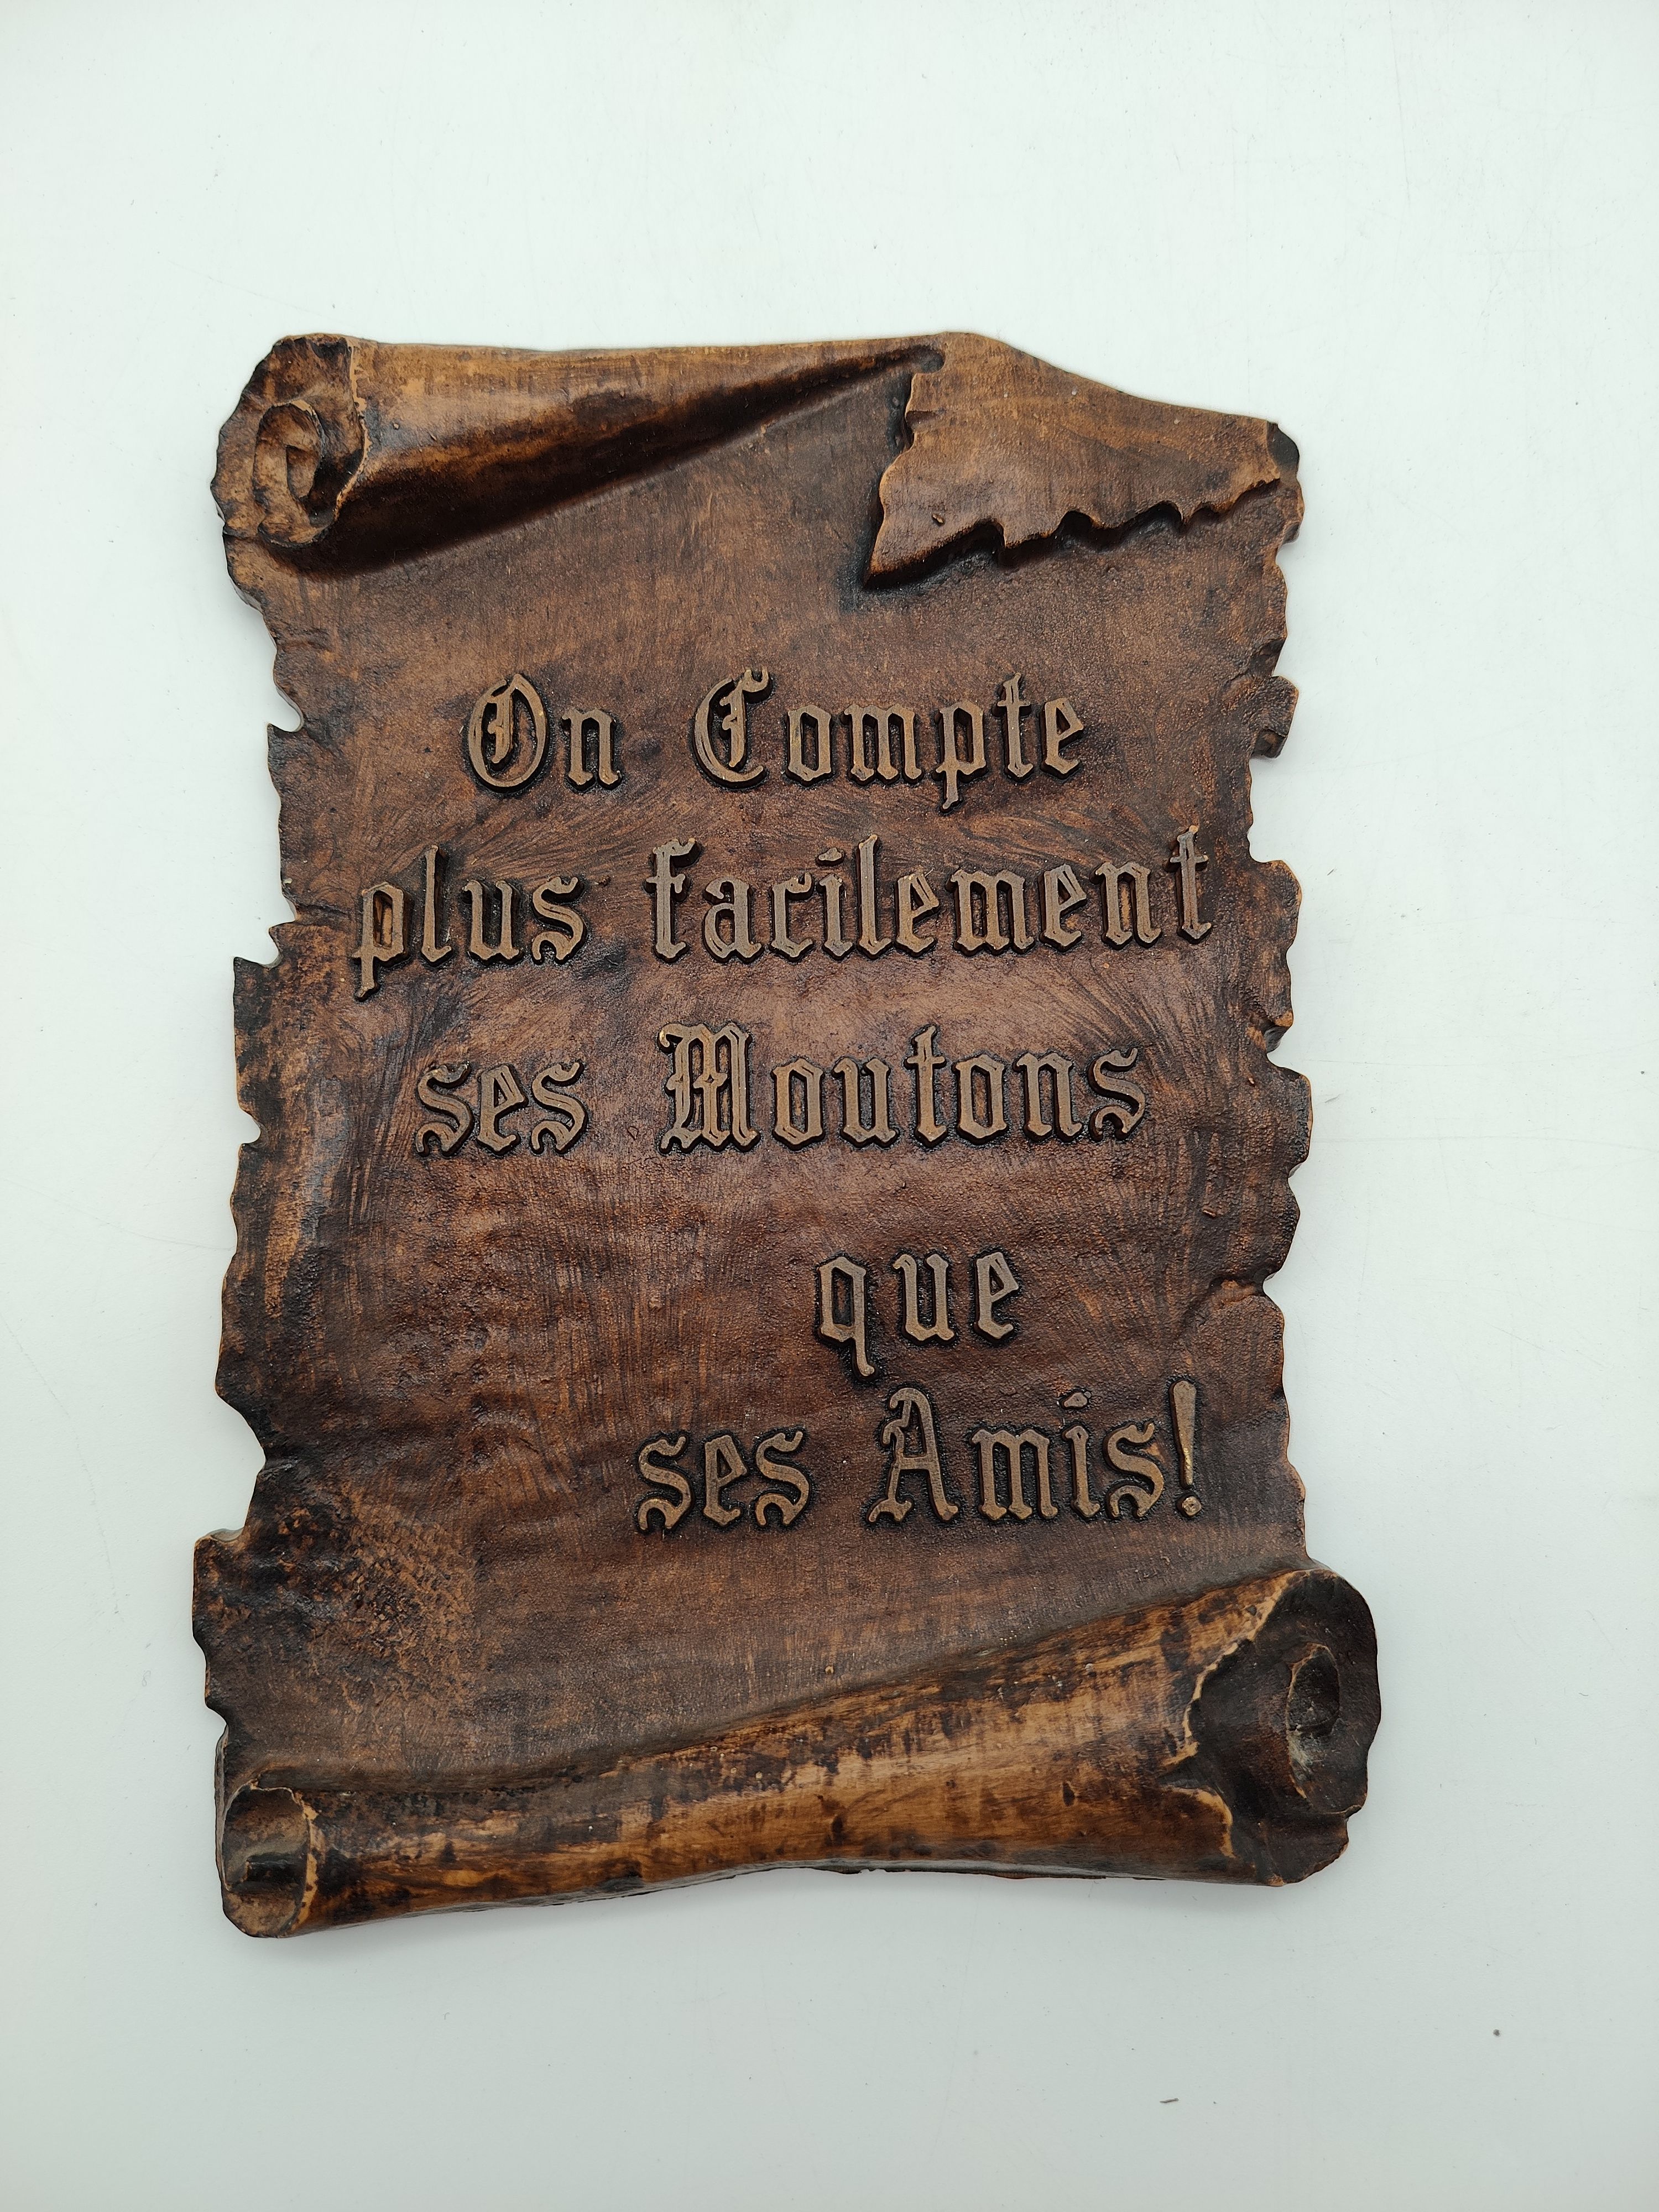 On Compte
plus facilement
ses Moutons
que
ses Amis!